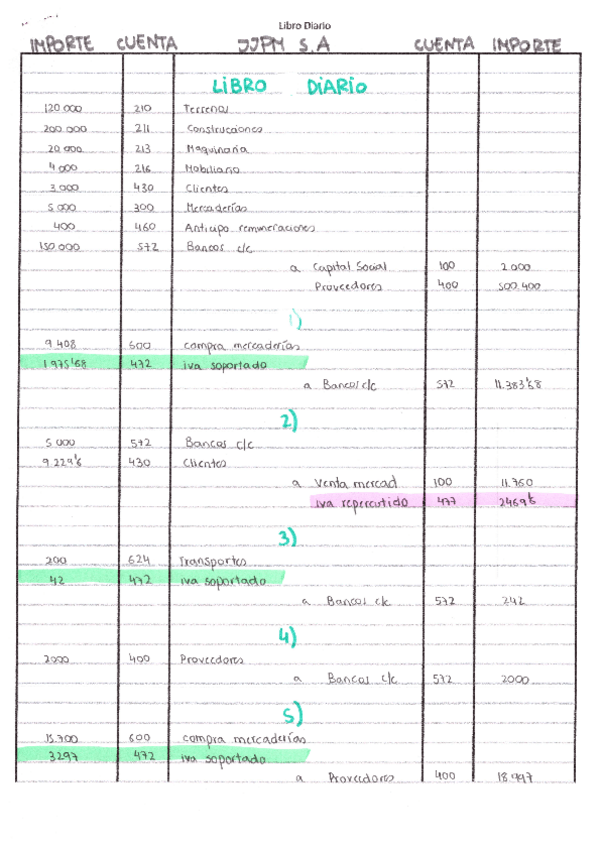 Libro Diario
IMPORTE CUENTA JJPM S.A CUENTA IMPORTE
LIBRO DIARIO
120.000 210 Terrenos
200.000 211 Construcciones
20.000 213 Maquinaria
4.000 216 Mobiliario
3.000 430 Clientes
5.000 300 Mercaderías
400 460 Anticipo remuneraciones
150.000 572 Bancos c/c
a Capital Social 100 2.000
Proveedores 400 500.400
1)
9.408 600 compra mercaderías
1.975'68 472 iva soportado
a Bancos c/c 572 11.383'68
2)
5.000 572 Bancos c/c
9.229'6 430 Clientes
a Venta mercad 100 11.760
iva repercutido 477 2469'6
3)
200 624 Transportes
42 472 iva soportado
a Bancos c/c 572 242
4)
2000 400 Proveedores
a Bancos c/c 572 2000
5)
15.700 600 compra mercaderías
3297 472 iva soportado
a Proveedores 400 18.997